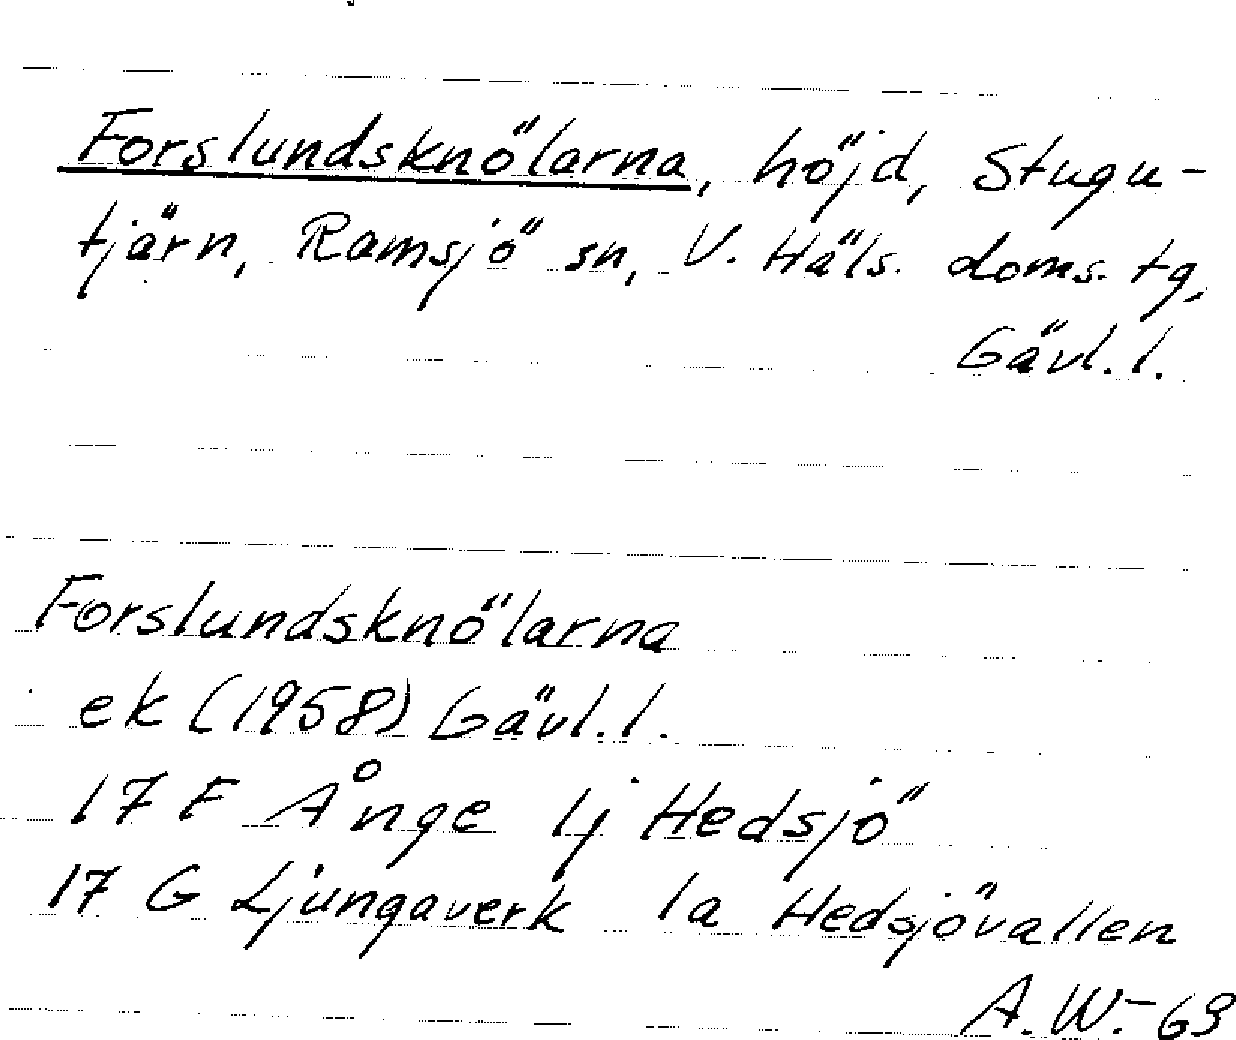 Forslundsknölarna, höjd, Stugu-
tjärn, Ramsjö sn, V. Häls. doms. tg,
Gävl. l.
Forslundsknölarna
ek (1958) Gävl. l.
17 F Ånge 1j Hedsjö
17 G Ljungaverk 1a Hedsjövallen
A.W.-69